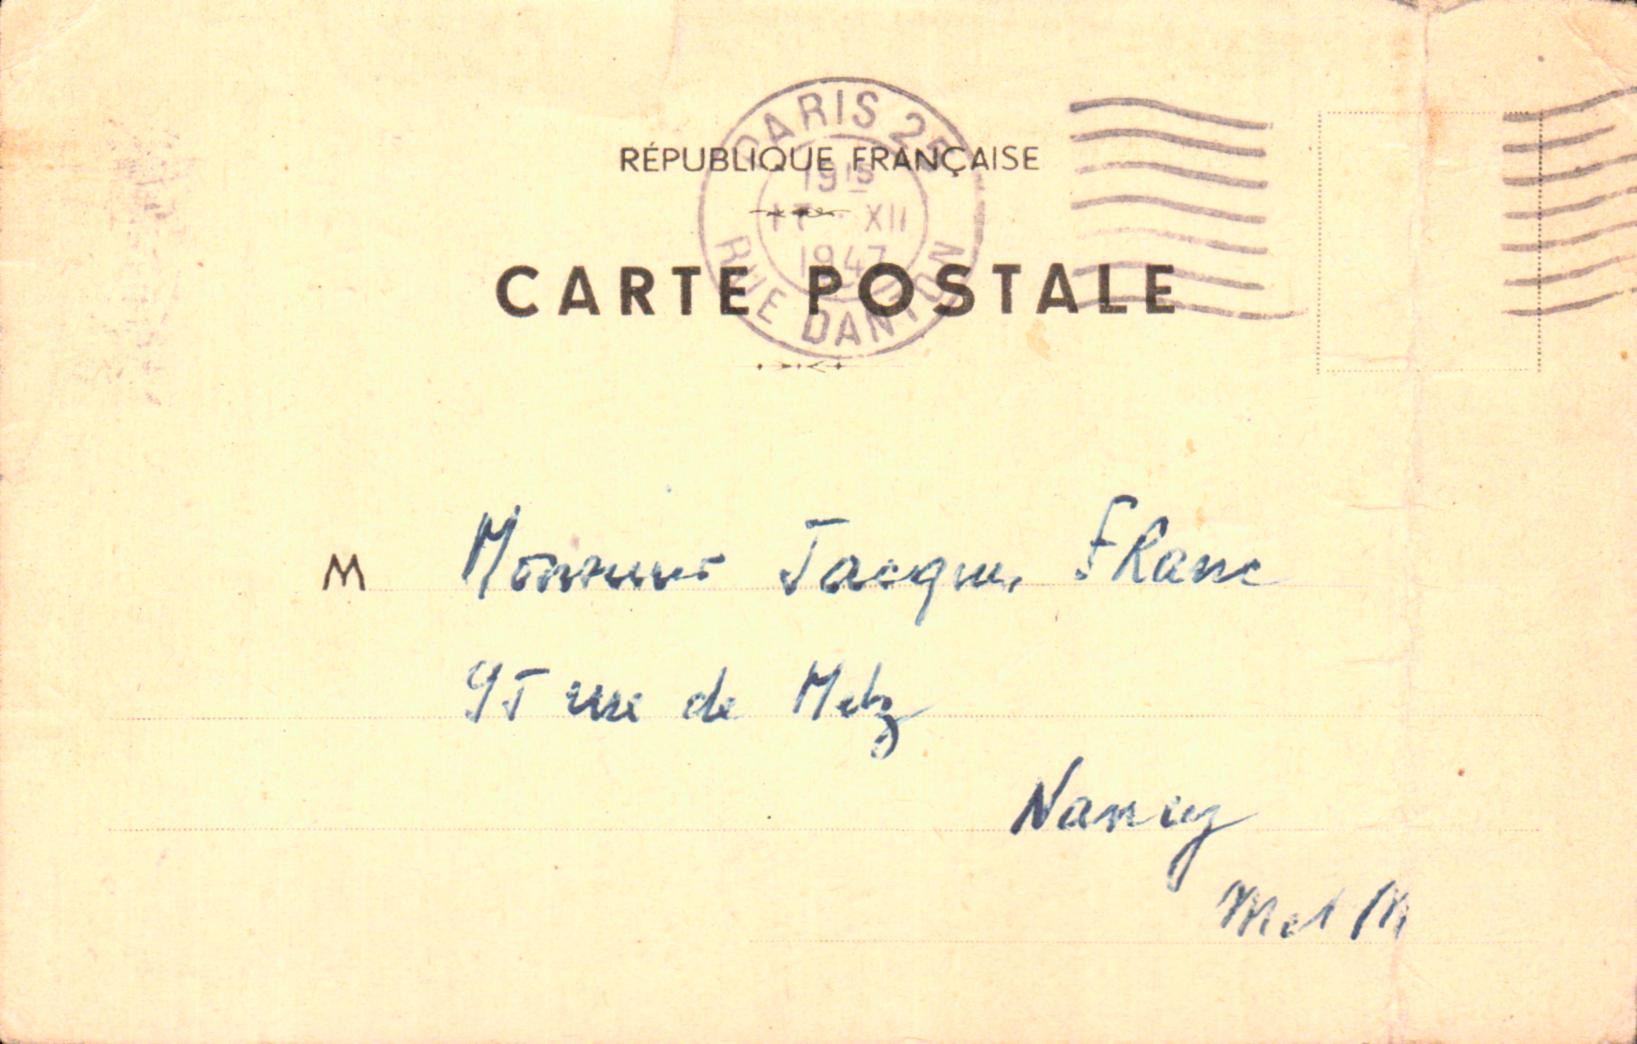 PARIS 25
RÉPUBLIQUE FRANÇAISE
19 15
17 XII
1947
RUE DANTON
CARTE POSTALE
M Monsieur Jacques FRanc
95 rue de Metz
Nancy
M et M